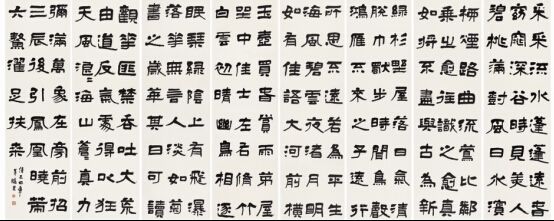 采采流水蓬蓬遠春
窈窕深谷時見美人
碧桃滿樹風日水濱
柳陰路曲流鶯比鄰
乘之愈往識之愈真
如將不盡與古為新
綠杉野屋落日氣清
脫巾獨步時聞鳥聲
鴻雁不來之子遠行
所思不遠若為平生
海風碧雲夜渚月明
如有佳語大河前橫
玉壺買春賞雨茆屋
坐中佳士左右修竹
白雲初晴幽鳥相逐
眠琴綠陰上有飛瀑
落華無言人淡如菊
書之歲華其曰可讀
觀華匪禁吞吐大荒
由道返氣處得以狂
天風浪=海山蒼=真力
彌滿萬象在旁前招
三辰後引鳳凰曉策
六鰲濯足扶桑